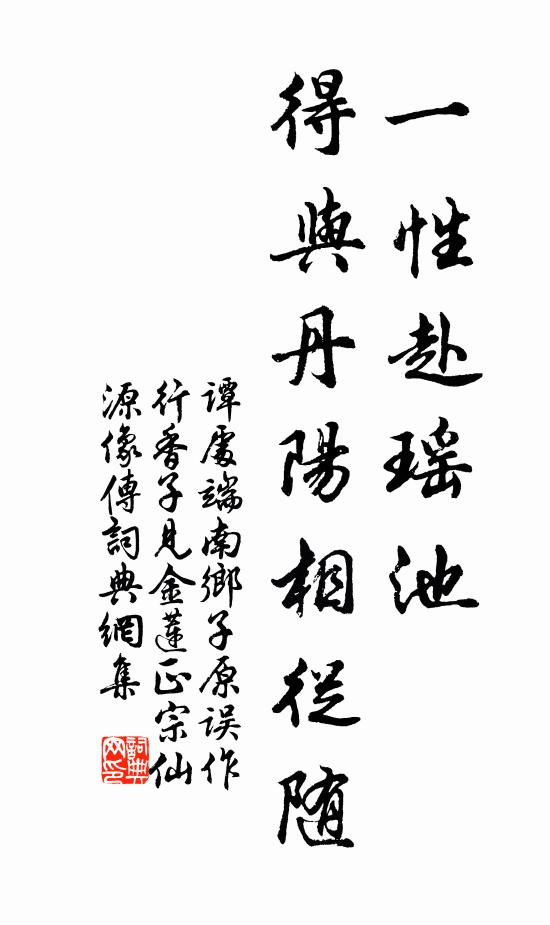 一性赴瑶池
得與丹陽相從随
譚處端南鄉子原误作
行香子見金蓮正宗仙
源像傳詞典網集
詞典网印